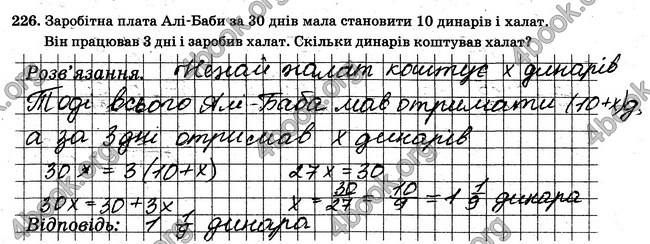 226. Заробітна плата Алі-Баби за 30 днів мала становити 10 динарів і халат.
Він працював 3 дні і заробив халат. Скільки динарів коштував халат?
Розв'язання. Нехай халат коштує x динарів
Тоді всього Алі-Баба мав отримати (10+x)д,
а за 3 дні отримав x динарів
30x = 3(10+x) 27x = 30
30x = 30 + 3x x = 30/27 = 10/9 = 1 1/9 динара
Відповідь: 1 1/9 динара
4book.org